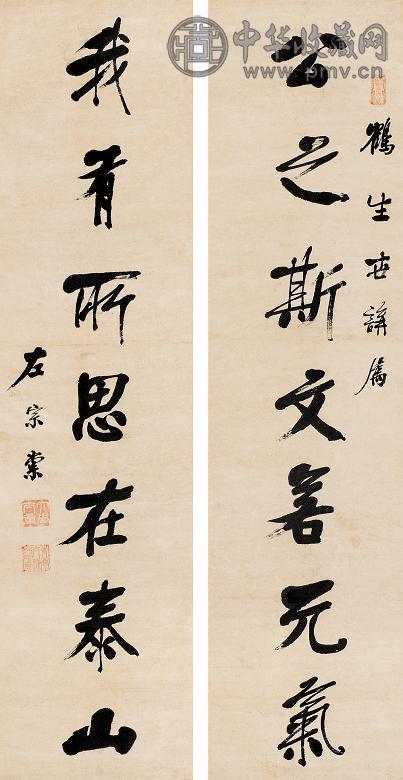 中华收藏网
www.pmv.cn
鶴生世講屬
公之斯文若元氣
我有所思在泰山
左宗棠